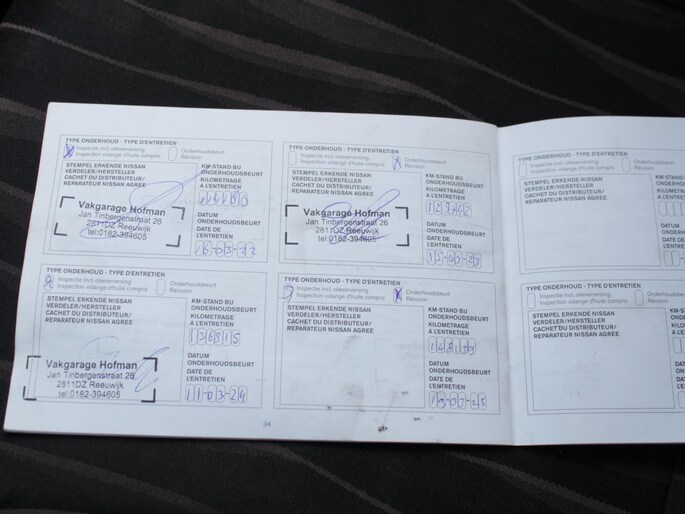 TYPE ONDERHOUD - TYPE D'ENTRETIEN
Inspectie incl. olieverversing
Inspection vidange d'huile compris
Onderhoudsbeurt
Révision
STEMPEL ERKENDE NISSAN
VERDELER/HERSTELLER
CACHET DU DISTRIBUTEUR/
REPARATEUR NISSAN AGREE
KM-STAND BIJ
ONDERHOUDSBEURT
KILOMETRAGE
A L'ENTRETIEN
Vakgarage Hofman
Jan Tinbergenstraat 26
2811DZ Reeuwijk
tel:0182-394605
DATUM
ONDERHOUDSBEURT
DATE DE
L'ENTRETIEN
16-03-22
TYPE ONDERHOUD - TYPE D'ENTRETIEN
Inspectie incl. olieverversing
Inspection vidange d'huile compris
Onderhoudsbeurt
Révision
STEMPEL ERKENDE NISSAN
VERDELER/HERSTELLER
CACHET DU DISTRIBUTEUR/
REPARATEUR NISSAN AGREE
KM-STAND BIJ
ONDERHOUDSBEURT
KILOMETRAGE
A L'ENTRETIEN
Vakgarage Hofman
Jan Tinbergenstraat 26
2811DZ Reeuwijk
tel:0182-394605
DATUM
ONDERHOUDSBEURT
DATE DE
L'ENTRETIEN
15-03-23
TYPE ONDERHOUD - TYPE D'ENTRETIEN
Inspectie incl. olieverversing
Inspection vidange d'huile compris
Onderhoudsbeurt
Révision
STEMPEL ERKENDE NISSAN
VERDELER/HERSTELLER
CACHET DU DISTRIBUTEUR/
REPARATEUR NISSAN AGREE
KM-STAND BIJ
ONDERHOUDSBEURT
KILOMETRAGE
A L'ENTRETIEN
136815
Vakgarage Hofman
Jan Tinbergenstraat 26
2811DZ Reeuwijk
tel:0182-394605
DATUM
ONDERHOUDSBEURT
DATE DE
L'ENTRETIEN
11-03-24
TYPE ONDERHOUD - TYPE D'ENTRETIEN
Inspectie incl. olieverversing
Inspection vidange d'huile compris
Onderhoudsbeurt
Révision
STEMPEL ERKENDE NISSAN
VERDELER/HERSTELLER
CACHET DU DISTRIBUTEUR/
REPARATEUR NISSAN AGREE
KM-STAND BIJ
ONDERHOUDSBEURT
KILOMETRAGE
A L'ENTRETIEN
DATUM
ONDERHOUDSBEURT
DATE DE
L'ENTRETIEN
34
TYPE ONDERHOUD - TYPE D'ENTRETIEN
Inspectie incl. olieverversing
Inspection vidange d'huile compris
Onderhoudsbeurt
Révision
STEMPEL ERKENDE NISSAN
VERDELER/HERSTELLER
CACHET DU DISTRIBUTEUR/
REPARATEUR NISSAN AGREE
TYPE ONDERHOUD - TYPE D'ENTRETIEN
Inspectie incl. olieverversing
Inspection vidange d'huile compris
Onderhoudsbeurt
Révision
STEMPEL ERKENDE NISSAN
VERDELER/HERSTELLER
CACHET DU DISTRIBUTEUR/
REPARATEUR NISSAN AGREE